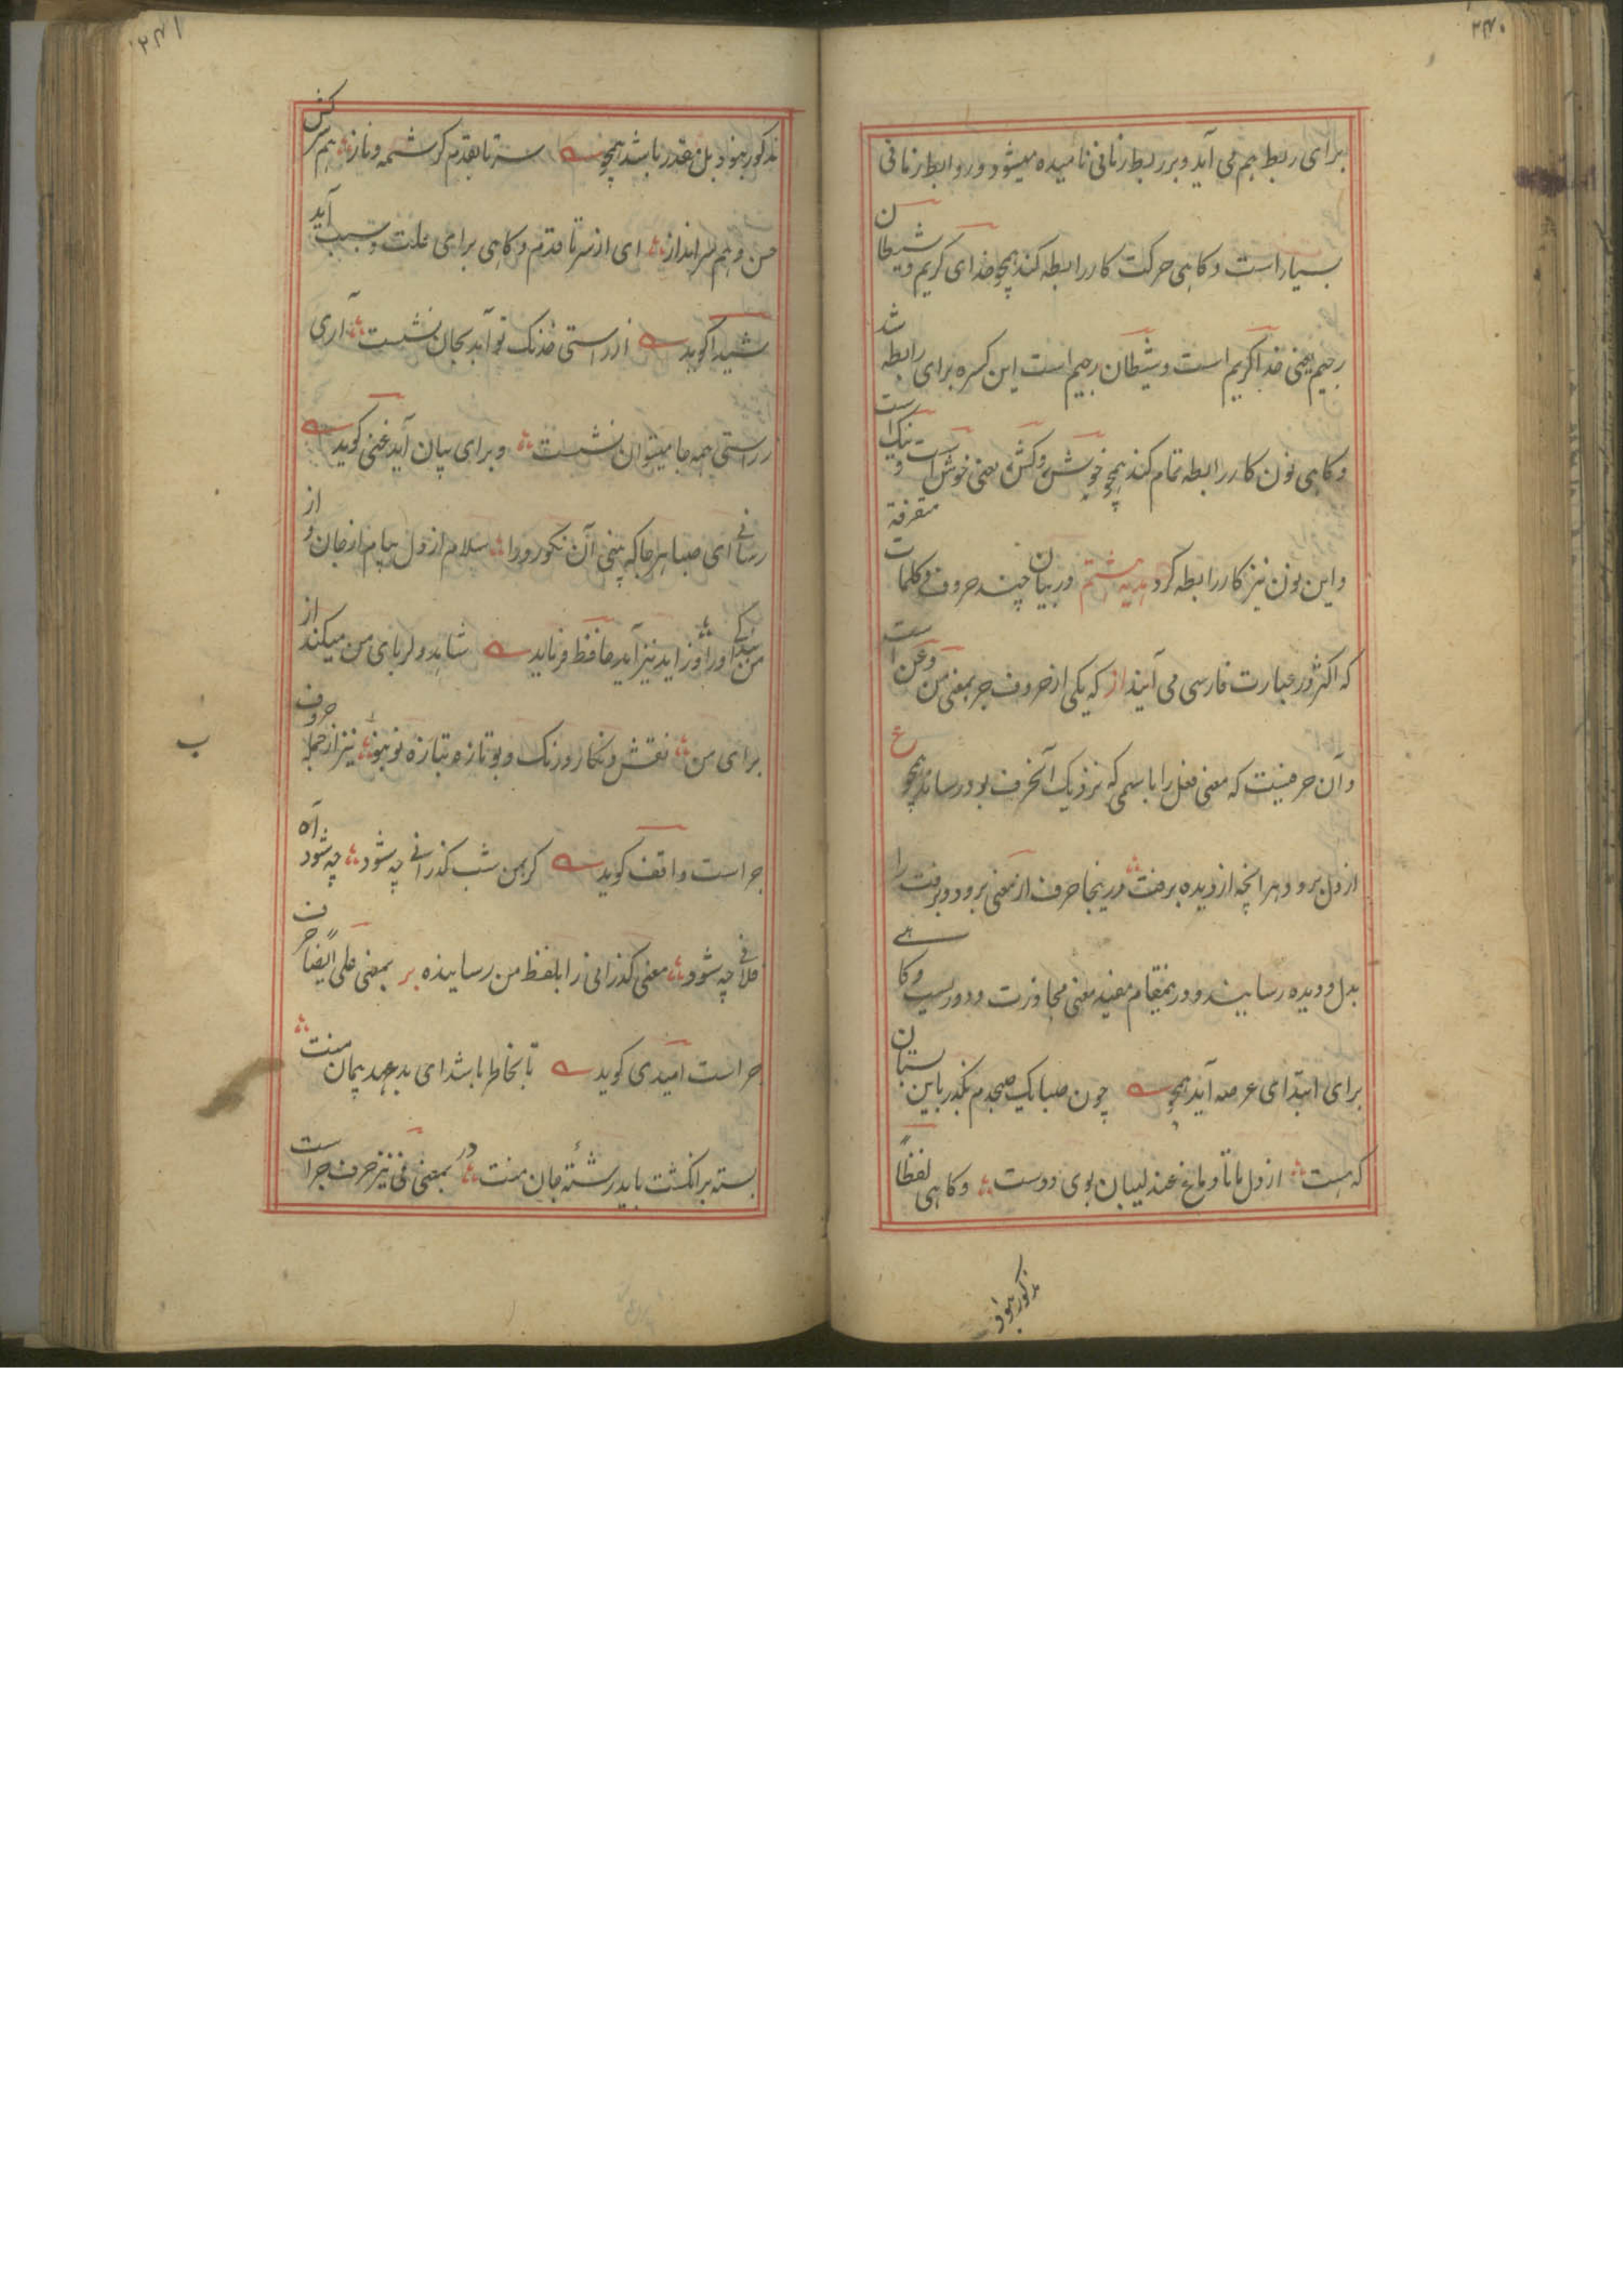 ۲۷۰
برای ربط هم می آید و بر ربط زمانی نامیده میشود و روابط زمانی
بسیار است و کاهی حرکت کار رابطه کند همچو خدای کریم و شیطان
رجیم یعنی خدا کریم است و شیطان رجیم است این کسره برای رابطه شد
و کاهی نون کار رابطه تمام کند همچو خوشن و کشن یعنی خوش است و نیک است
و این نون نیز کار رابطه کرد هدیه هشتم در بیان چند حروف و کلمات متفرقة
که اکثر در عبارت فارسی می آیند از که یکی از حروف جر بمعنی من و عن است
و آن حرفیست که معنی فعل را باسمی که نزدیک آنحرف بود رساند همچو ع
از دل برود هر انچه از دیده برفت درینجا حرف از معنی برود و برفت را
بدل و دیده رسانیند و در نمقام مفید معنی مجاوزت و دوریست و کاهے
برای ابتدای عرصه آید همچو چون صبا یک صبحدم بکذر باین بستان
که هست از دل ما تا دماغ عندلیبان بوی دوست و کاهی لفظاً
مذکور نبود
۲۷۱
مذکور نبود بل مقدر باشد همچو سرتا بقدم کرشمه و ناز هم سرکش
حسن و هم سرانداز ای از سر تا قدم و کاهی برای علت و سبب آید
شیدا کوید از راستی خدنک تو آید بجان نشست آری
ز راستی همه جا میتوان نشست و برای بیان آید غنی کوید
ای صبا هر جا که بینی آن نکورو را سلام از دل پیام از جان و از
من رسانے او را و زاید نیز آید حافظ فرماید شاهد دلربای من میکند از
برای من نقش و نکار و رنک و بو تازه بتازه نو بنو نیز از جمله حروف
جر است واقف کوید کر بمن شب کذرانے چه شود چه شود آه
فلانے چه شود معنی کذرانی را بلفظ من رسانیده بر بمعنی علی ایضاً حرف
جر است امیدی کوید تا بخاطر باشد ای بد عهد پیمان منت
بسته بر انکشت باید رشتهٔ جان منت در بمعنی فی نیز حرف جر است
ب